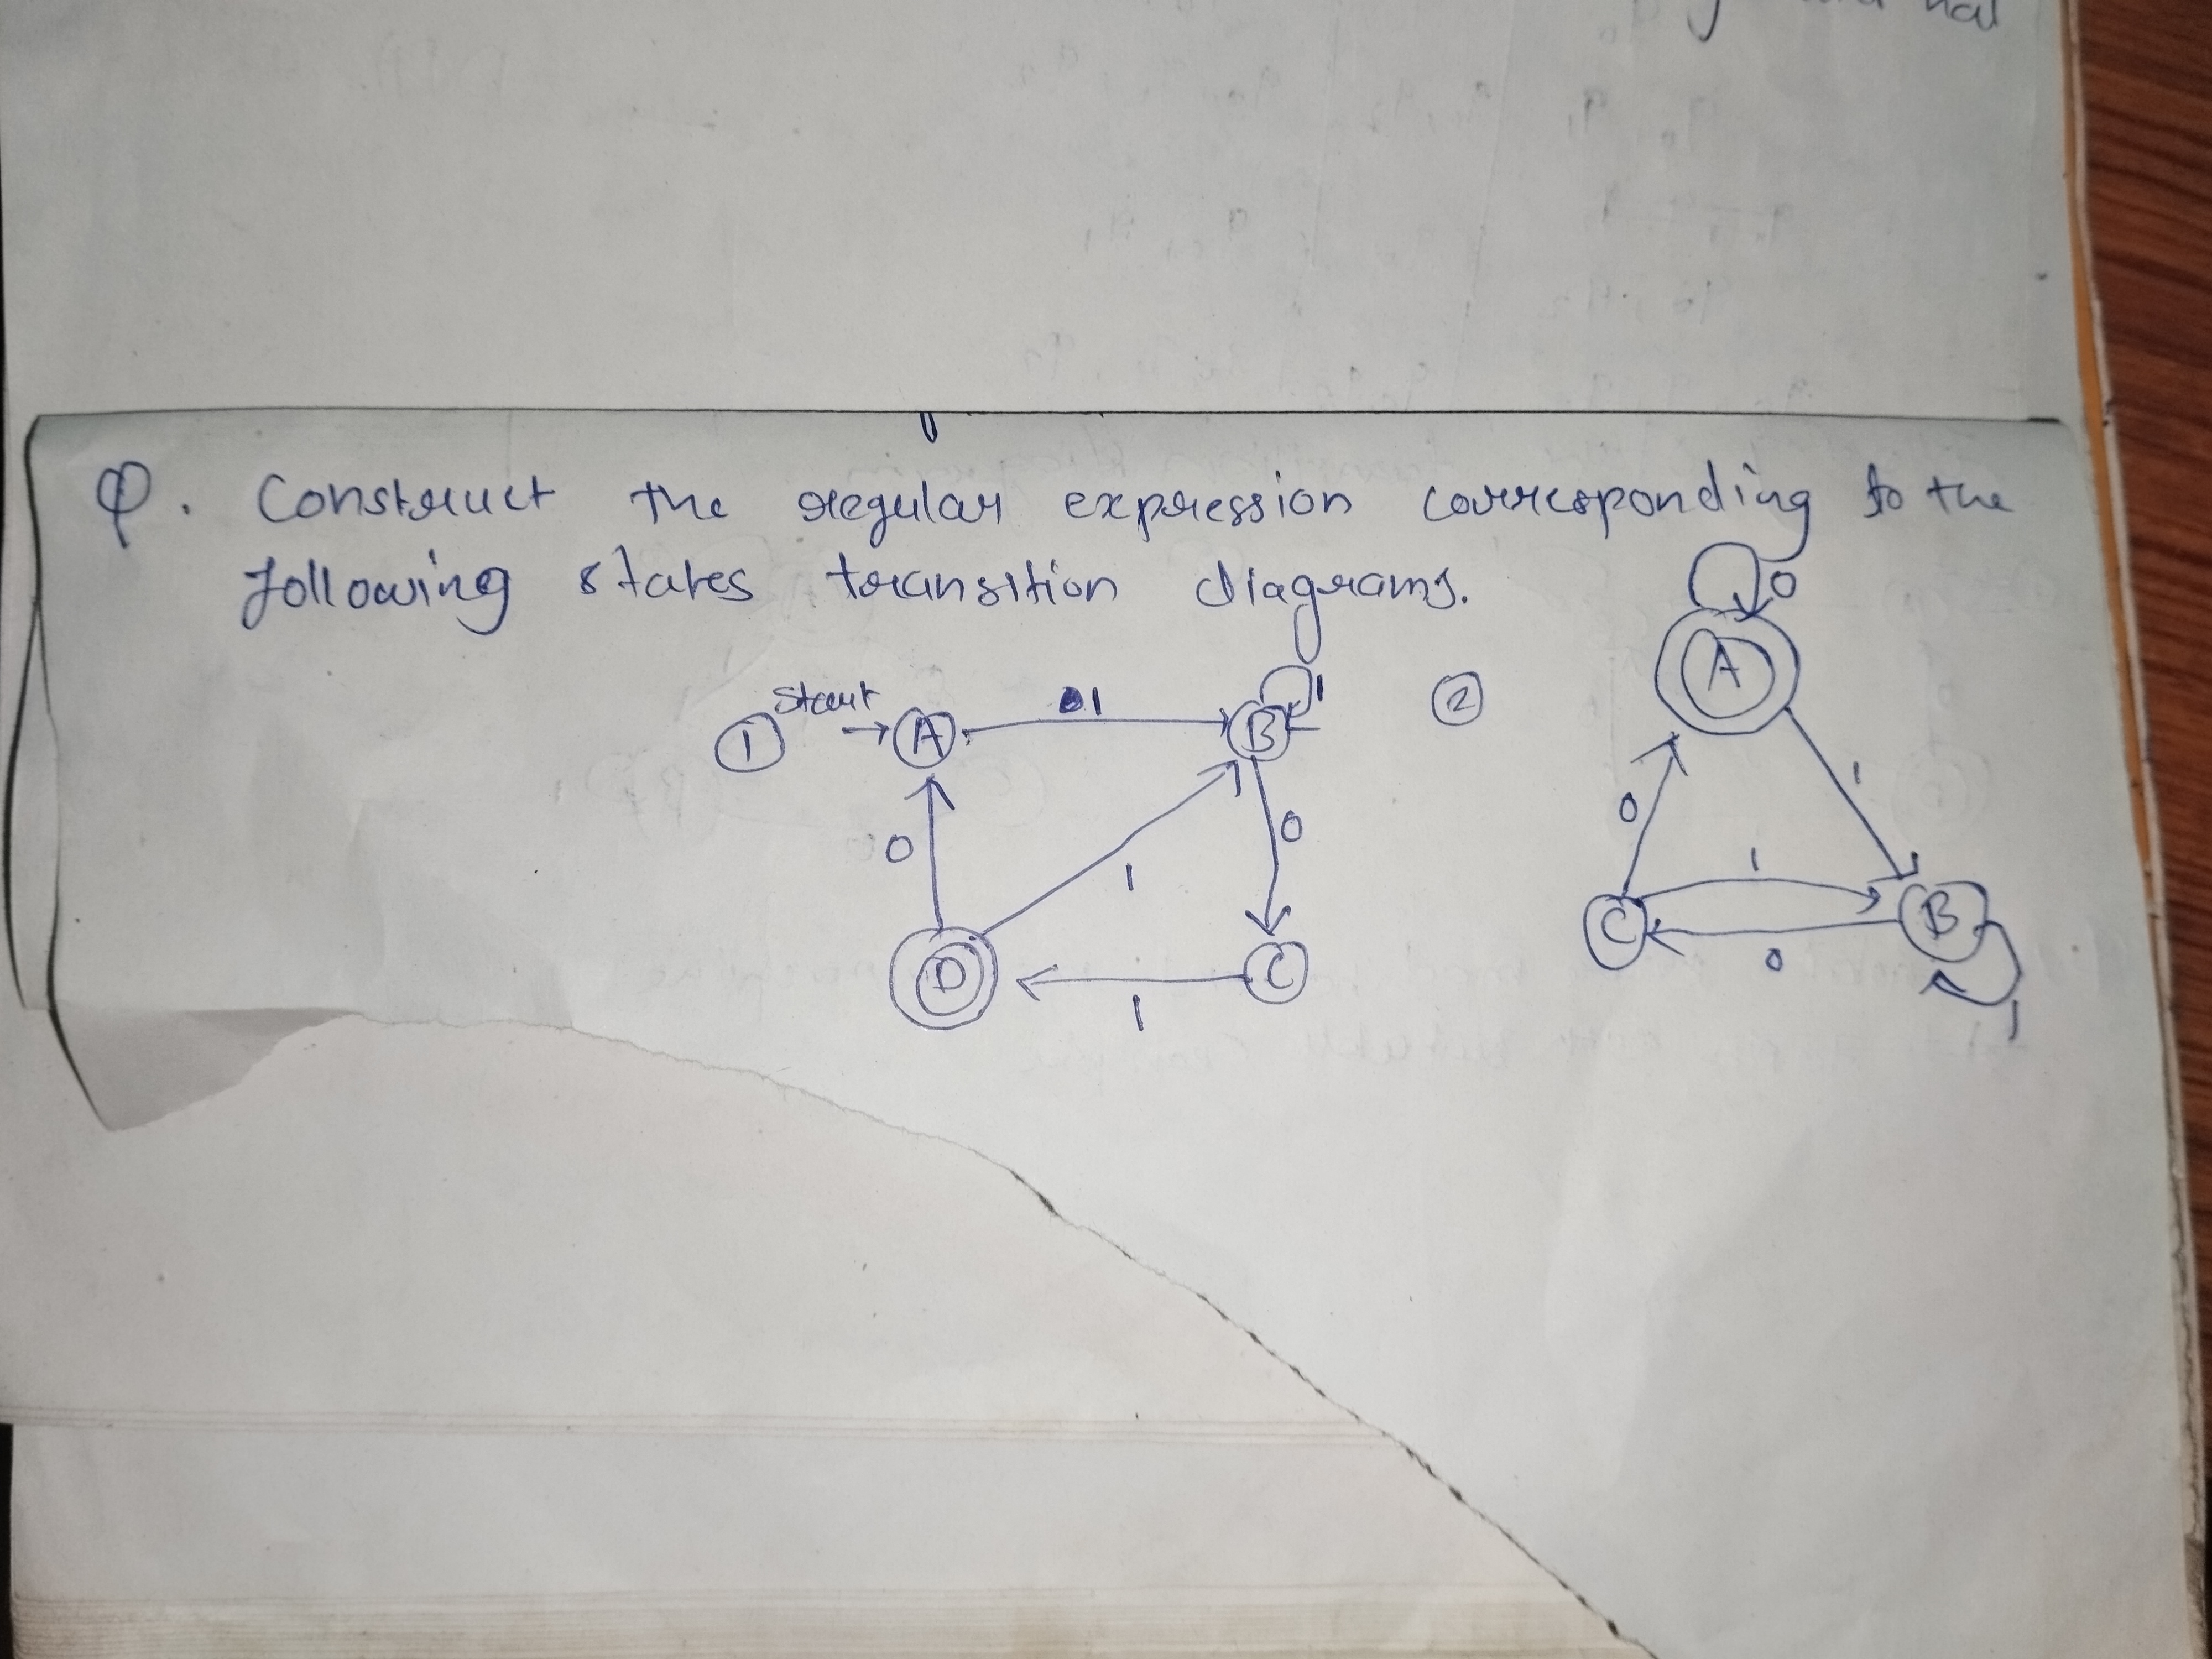 Q. Construct the regular expression corresponding to the
following states transition diagrams.
① start A 1 B 1
0 1 0
D 1 C
② A 0
0 1
C 1 B
0 1